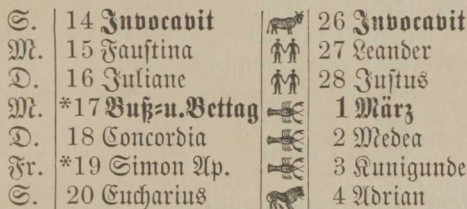 S. 14 Invocavit 26 Invocavit
M. 15 Faustina 27 Leander
D. 16 Juliane 28 Justus
M. *17 Buß- u. Bettag 1 März
D. 18 Concordia 2 Medea
Fr. *19 Simon Ap. 3 Kunigunde
S. 20 Eucharius 4 Adrian